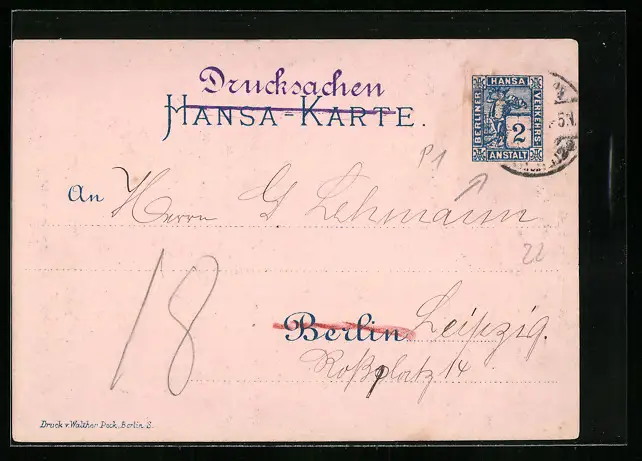 Drucksachen
HANSA-KARTE.
BERLINER HANSA VERKEHRS ANSTALT
2
P1
An Herrn G Lehmann
22
18
Berlin Leipzig.
Roßplatz 14
Druck v. Walther Peck, Berlin S.